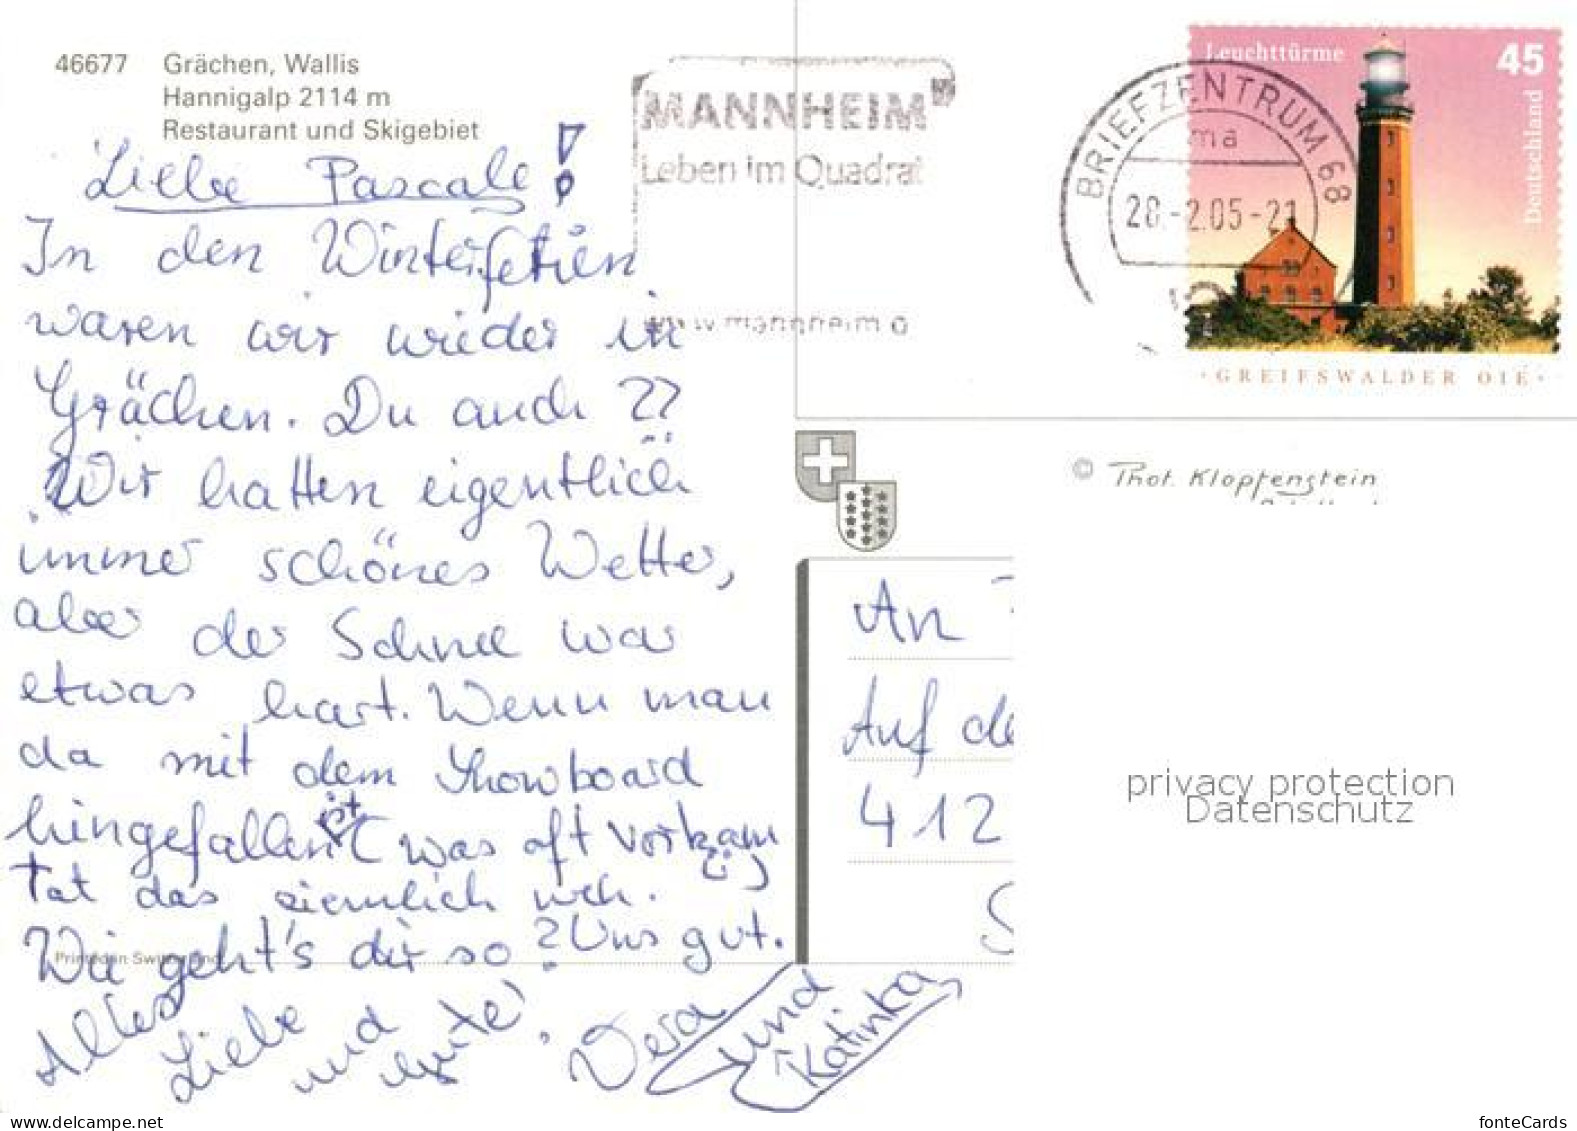 46677 Grächen, Wallis
Hannigalp 2114 m
Restaurant und Skigebiet
Liebe Pascale!
In den Winterferien
waren wir wieder in
Grächen. Du auch??
Wir hatten eigentlich
immer schönes Wetter,
aber der Schnee war
etwas hart. Wenn man
da mit dem Snowboard
hingefallen ist (was oft vorkam
tat das ziemlich weh.
Wie geht's dir so? Uns gut.
Alles
Liebe
und
gute!
Vera
und
Katinka
Printed in Switzerland
MANNHEIM
Leben im Quadrat
www.mannheim.d
BRIEFZENTRUM 68
ma
28.-2.05-21
Leuchttürme
45
Deutschland
GREIFSWALDER OIE
© Phot. Klopfenstein
An
Auf de
412
S
privacy protection
Datenschutz
www.delcampe.net
fonteCards